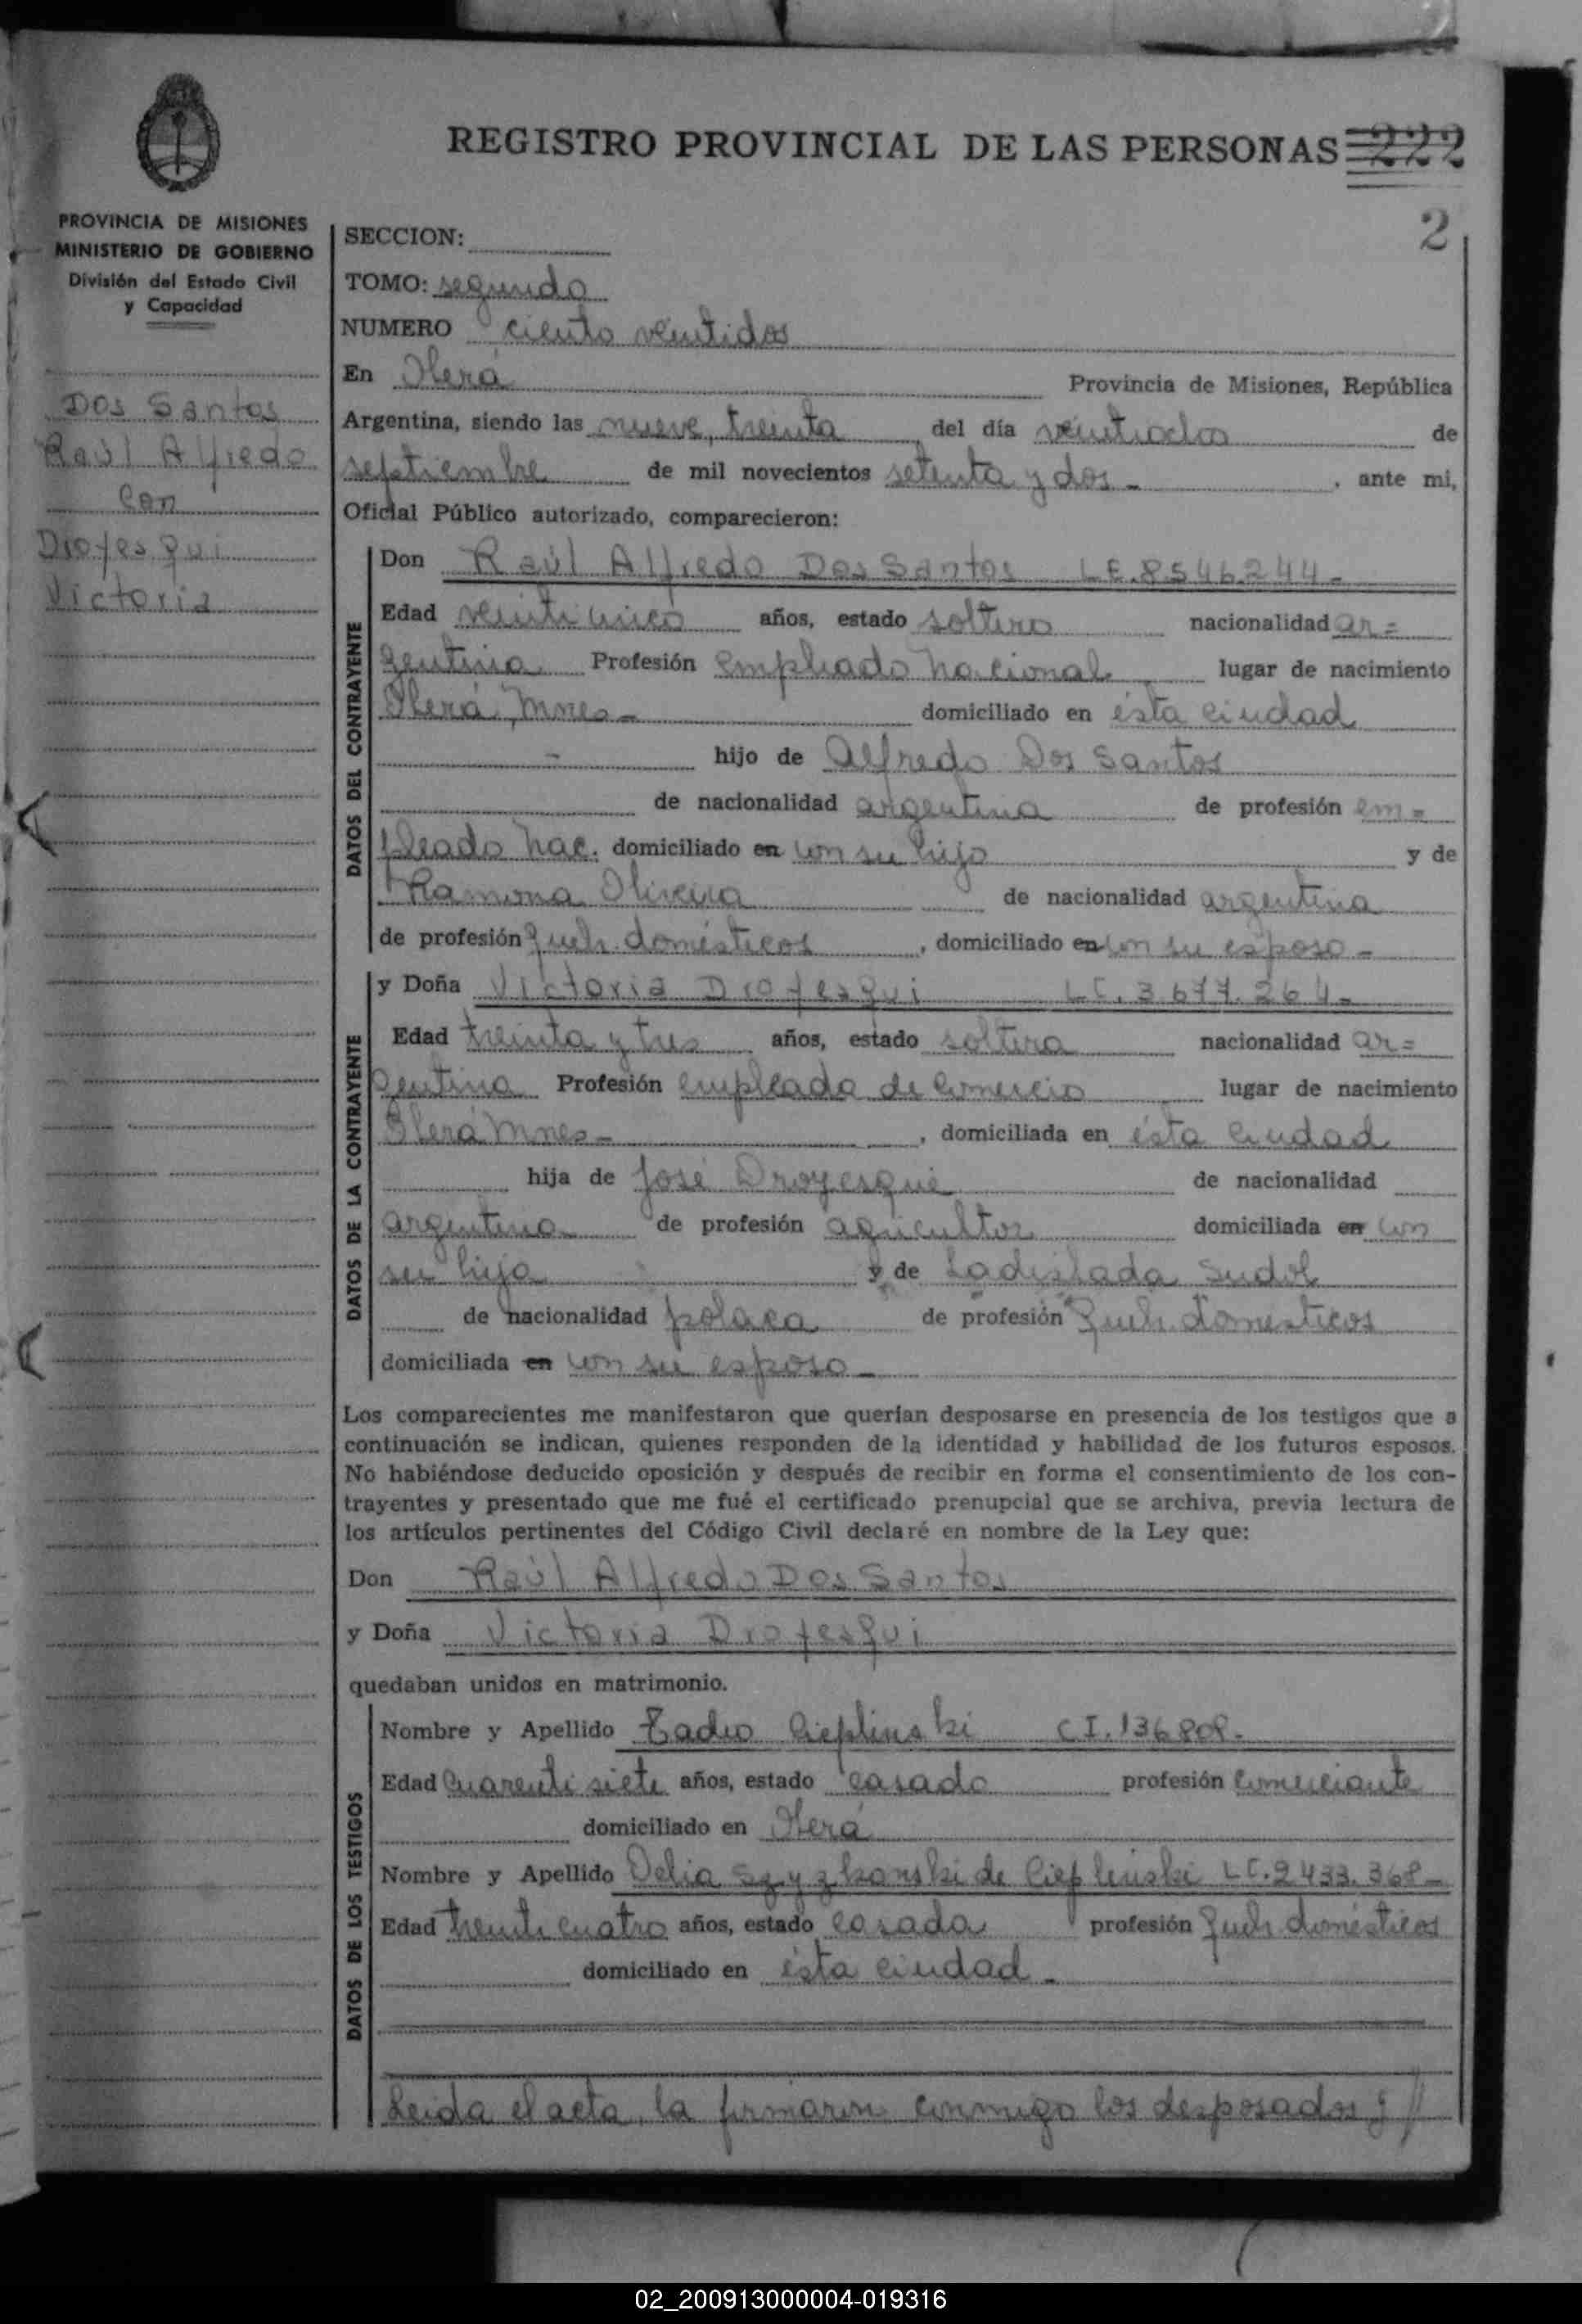 REGISTRO PROVINCIAL DE LAS PERSONAS 222
2
PROVINCIA DE MISIONES
MINISTERIO DE GOBIERNO
División del Estado Civil
y Capacidad
Dos Santos
Raúl Alfredo
con
Droyesqui
Victoria
SECCION:
TOMO: segundo
NUMERO ciento veintidos
En Oberá Provincia de Misiones, República
Argentina, siendo las nueve, treinta del día veintiocho de
septiembre de mil novecientos setenta y dos - , ante mi,
Oficial Público autorizado, comparecieron:
DATOS DEL CONTRAYENTE
Don Raúl Alfredo Dos Santos LE.8.546.244-
Edad años, estado soltero nacionalidad ar=
gentina Profesión empleado nacional lugar de nacimiento
Oberá, Mnes - domiciliado en ésta ciudad
- hijo de Alfredo Dos Santos
de nacionalidad argentina de profesión em=
pleado nac. domiciliado en con su hijo y de
Ramona Oliveira de nacionalidad argentina
de profesión queh. domésticos, domiciliado en con su esposo -
DATOS DE LA CONTRAYENTE
y Doña Victoria Droyesqui LC. 3.677.264-
Edad treinta y tres años, estado soltera nacionalidad ar=
gentina Profesión empleada de comercio lugar de nacimiento
Oberá Mnes - , domiciliada en ésta ciudad
hija de José Droyesqui de nacionalidad
argentina de profesión agricultor domiciliada en con
su hija y de Ladislada Sudol
de nacionalidad polaca de profesión queh. domesticos
domiciliada en con su esposo -
Los comparecientes me manifestaron que querían desposarse en presencia de los testigos que a
continuación se indican, quienes responden de la identidad y habilidad de los futuros esposos.
No habiéndose deducido oposición y después de recibir en forma el consentimiento de los con-
trayentes y presentado que me fué el certificado prenupcial que se archiva, previa lectura de
los artículos pertinentes del Código Civil declaré en nombre de la Ley que:
Don Raúl Alfredo Dos Santos
y Doña Victoria Droyesqui
quedaban unidos en matrimonio.
DATOS DE LOS TESTIGOS
Nombre y Apellido Tadeo Cieplinski C.I. 136.808.-
Edad cuarenti siete años, estado casado profesión comerciante
domiciliado en Oberá
Nombre y Apellido Delia de Cieplinski LC.2.433.368-
Edad treinti cuatro años, estado casada profesión queh domésticos
domiciliado en ésta ciudad -
Leida el acta, la firmaron conmigo los desposados y //
02_200913000004-019316